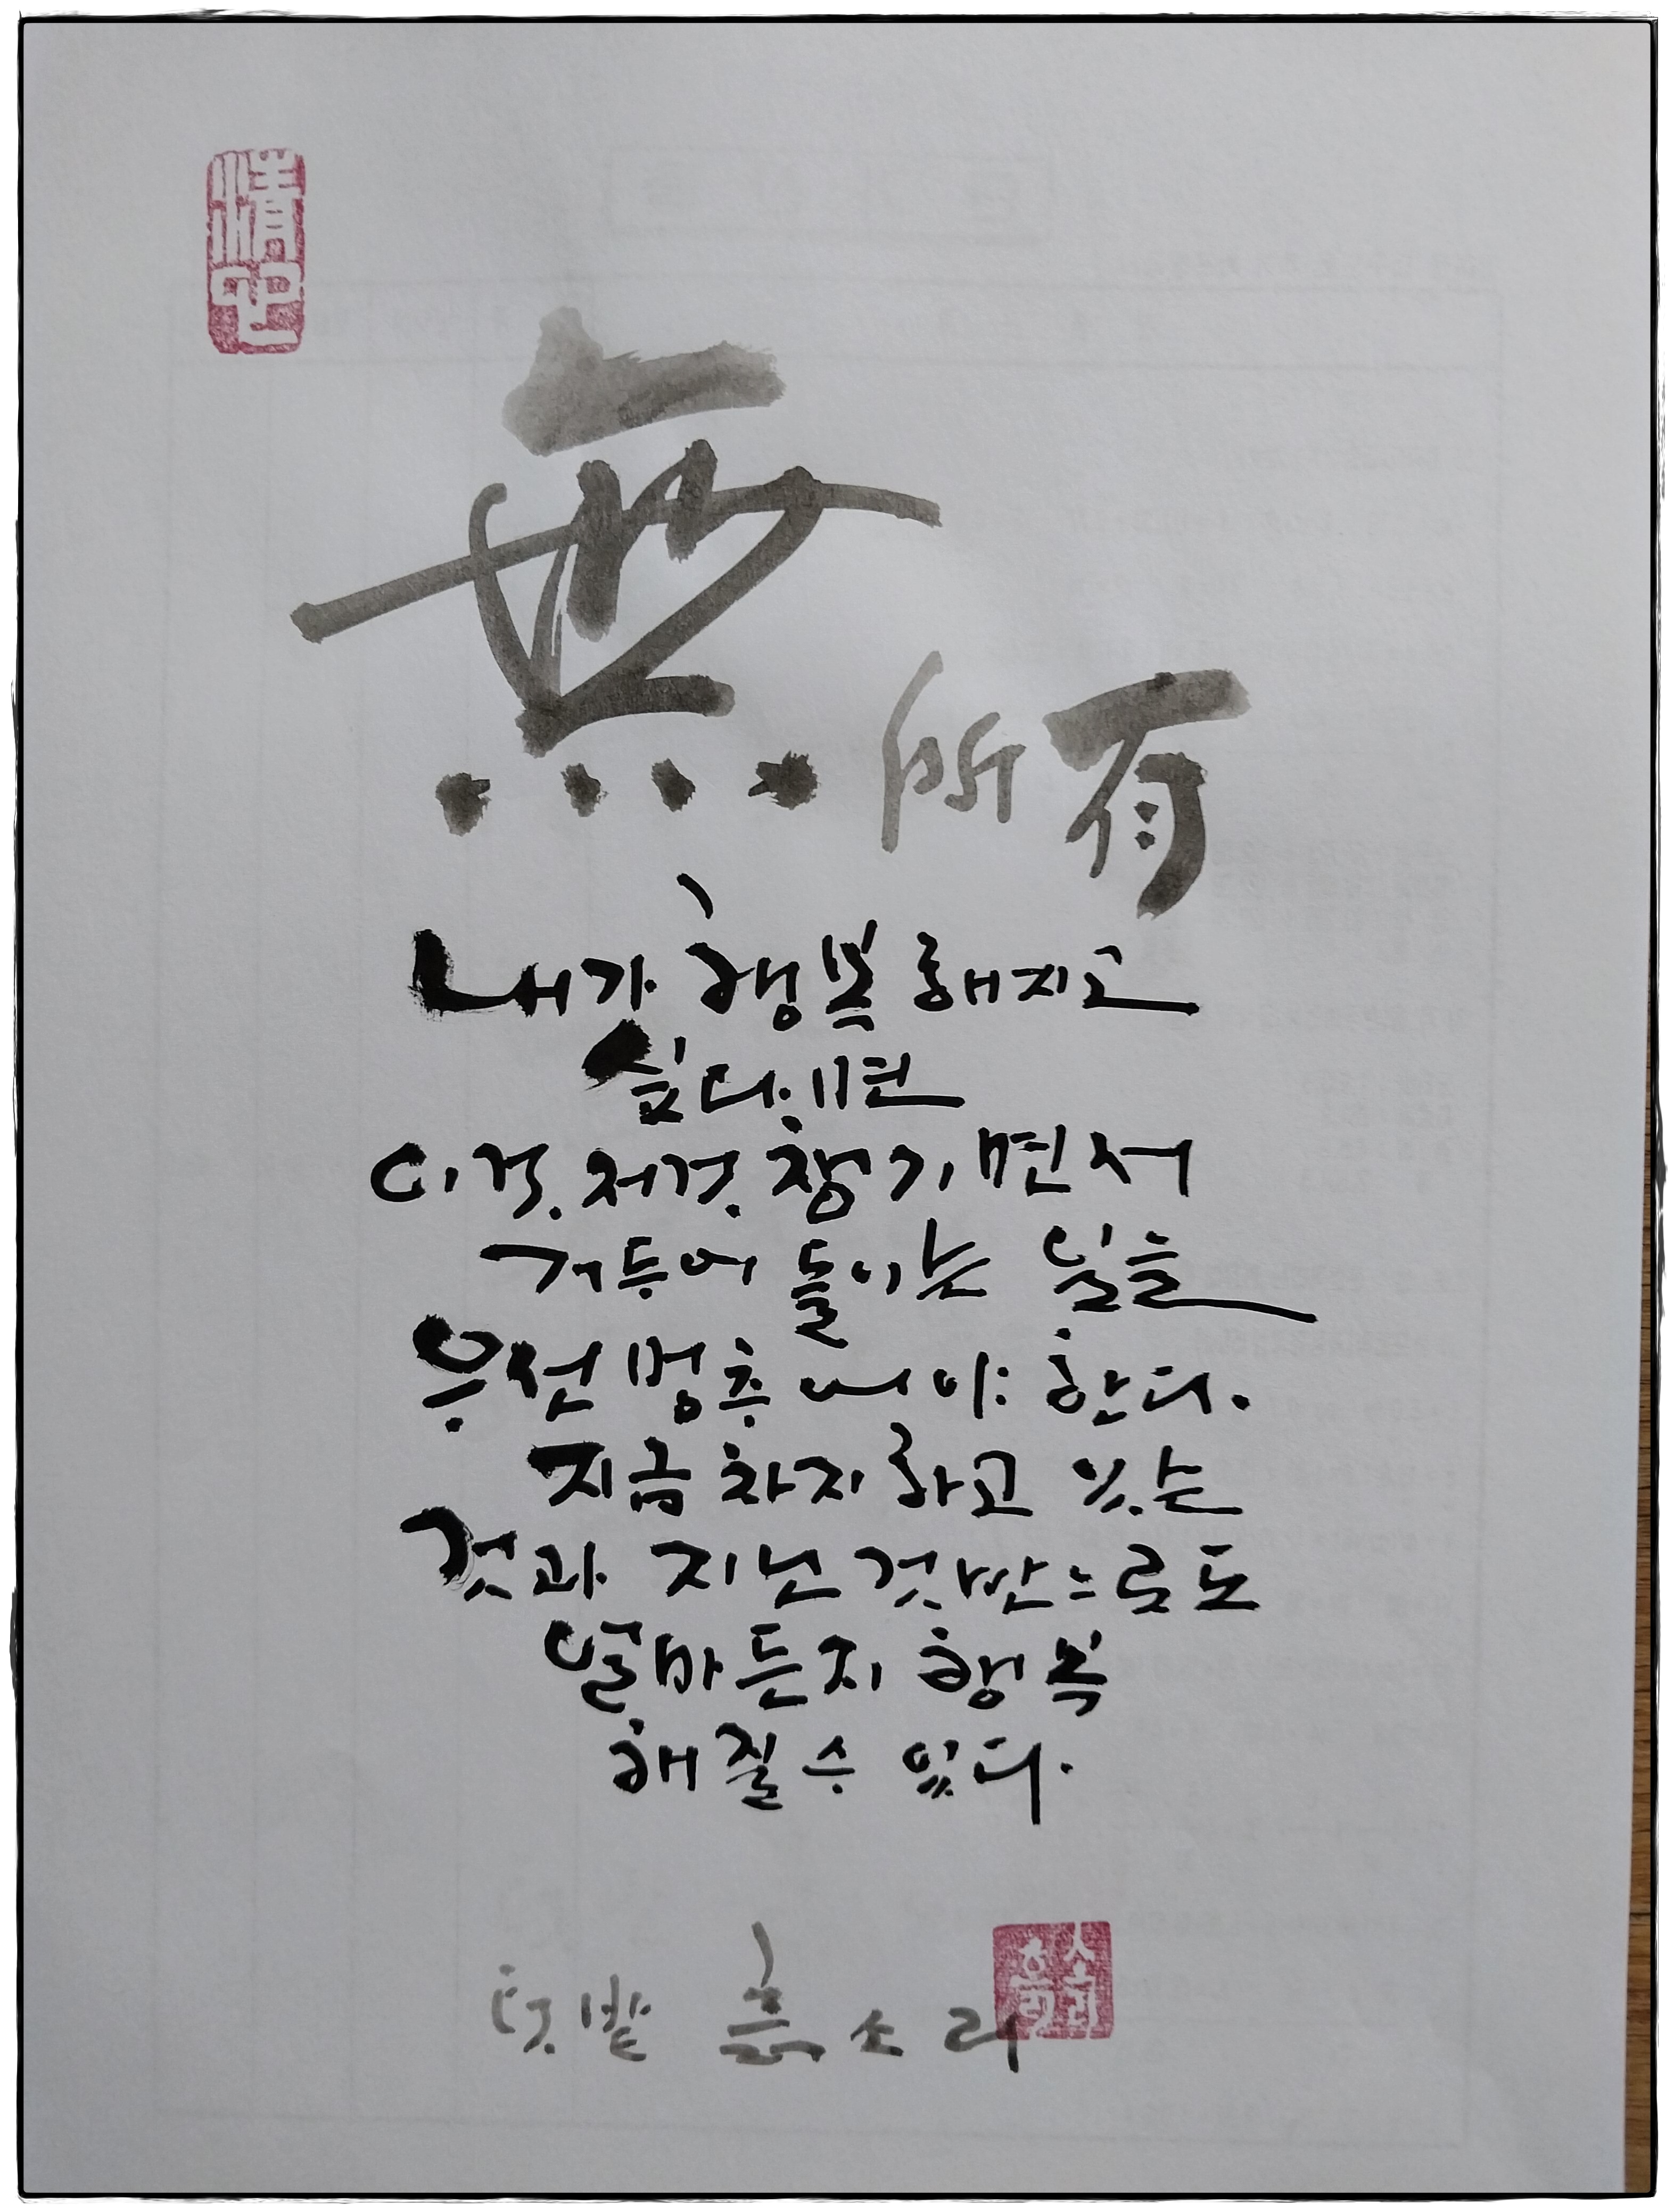 淸心
無所有
내가 행복해지고
싶다면
이것. 저것. 챙기면서
거두어 들이는 일을
우선 멈추어야 한다.
지금 차지하고 있는
것과 지닌 것만으로도
얼마든지 행복
해질 수 있다.
텃밭 흙소리
흙소리